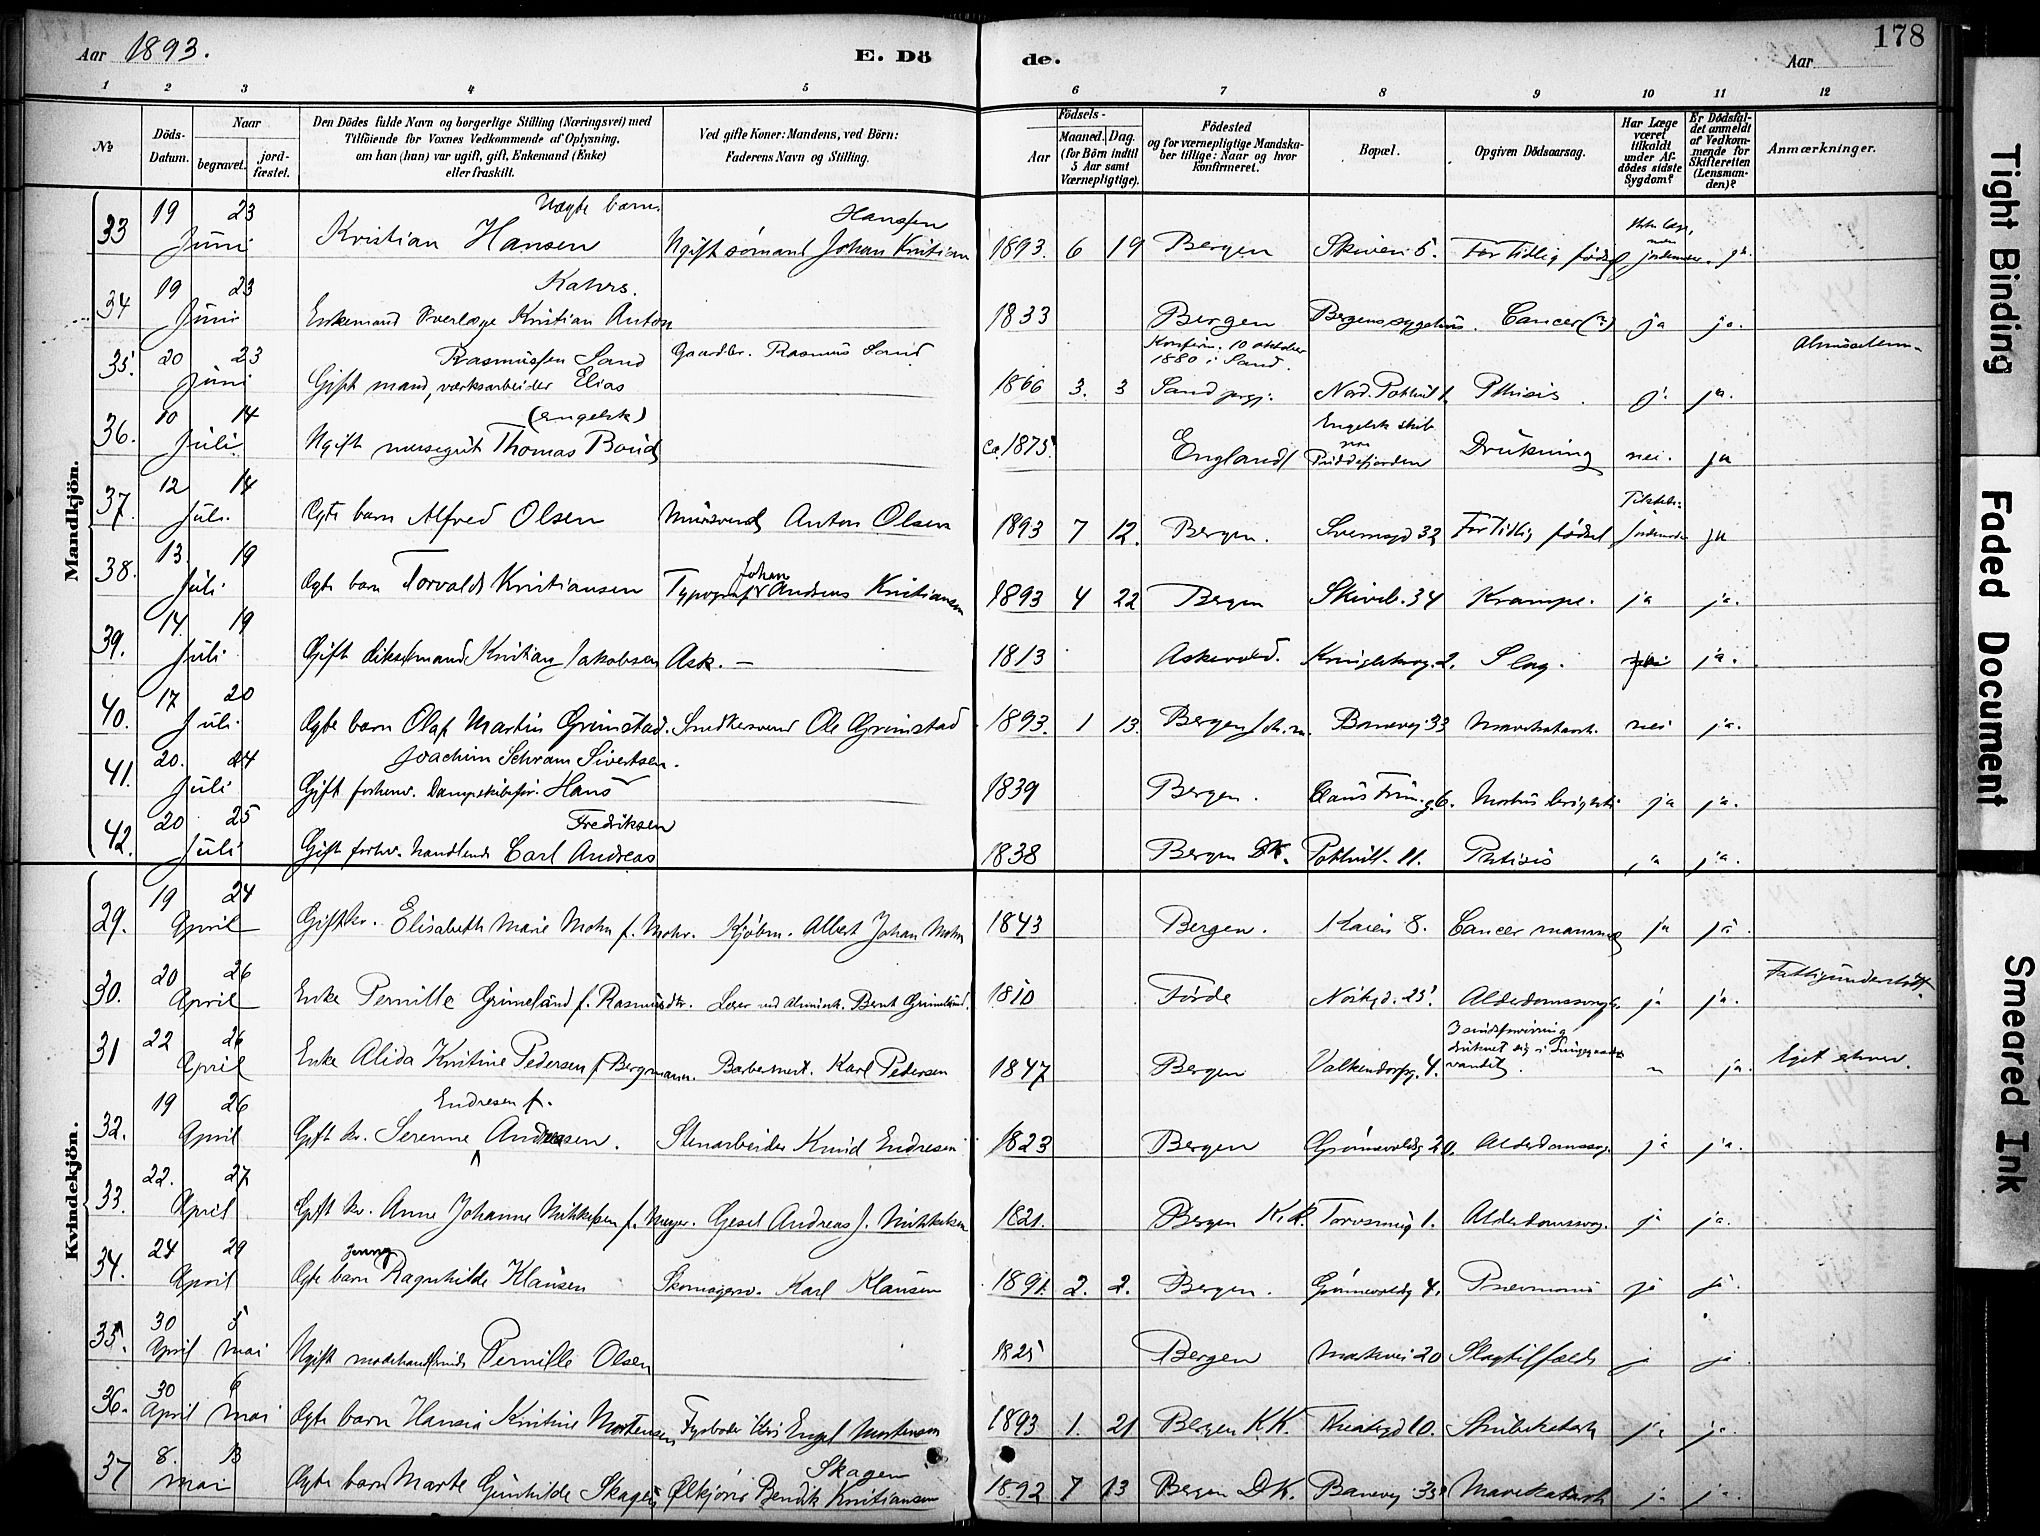 Aar 1893.
E. Dö
de.
Aar
178
1 2 3 4 5 6 7 8 9 10 11 12
№
Döds-Datum.
Naar
begravet.
jordfæstet.
Den Dödes fulde Navn og borgerlige Stilling (Næringsvei) med
Tilföiende for Voxnes Vedkommende af Oplysning,
om han (hun) var ugift, gift, Enkemand (Enke)
eller fraskilt.
Ved gifte Koner: Mandens, ved Börn:
Faderens Navn og Stilling.
Födsels-
Aar
Maaned.
Dag.
(for Börn indtil
5 Aar samt
Værnepligtige).
Födested
og for værnepligtige Mandska-
ber tillige: Naar og hvor
konfirmeret.
Bopæl.
Opgiven Dödsaarsag.
Har Læge
været
tilkaldt
under Af-
dödes sidste
Sygdom?
Er Dödsfal-
det anmeldt
af Vedkom-
mende for
Skifteretten
(Lensman-
den)?
Anmærkninger.
Mandkjön.
33 19 Juni 23 Uægte barn Kristian Hansen Ugift sømand Johan Kristian Hanssen 1893. 6 19 Bergen Skiveb. 5. For tidlig fødsel ja.
34 19 Juni 23 Enkemand Overlæge Kristian Anton Kahrs. 1833 Bergen Bergens sygehus. Cancer (?) ja ja.
35. 20 Juni 23 Gift mand, værksarbeider Elias Rasmussen Sand Gaardbr. Rasmus Sand 1866 3. 3 Konfirm. 10 oktober 1880 i Sand. Sand prgj. Nord. 1. Pthisis. ja ja.
36. 10 Juli 14 Ugift messegut Thomas (engelsk) ca. 1875. England Engelsk skib Puddefjorden Drukning nei. ja
37. 12 Juli 14 Ægte barn Alfred Olsen Mursvend Anton Olsen 1893 7 12. Bergen. 32 For tidlig fødsel ja
38. 13 Juli 19 Ægte barn Torvald Kristiansen Typograf Johan Andreas Kristiansen 1893 4 22 Bergen Skiveb. 34 Krampe. ja ja.
39. 14. Juli 19 Gift Kristian Jakobsen Ask. — 1813 Askevold. 2. Slag. ja.
40. 17 Juli 20 Ægte barn Olaf Martin Grimstad. Snedkersvend Ole Grimstad 1893. 1 13. Bergen Banevej 33 Mavekatarrh. nei ja.
41. 20. Juli 24 Gift forhenv. Dampskibsfør. Hans Joachim Schram Sivertsen. 1839 Bergen. 6. Morbus ja ja.
42. 20 Juli 25 Gift forhv. handlende Carl Andreas Fredriksen 1838 Bergen DK. 11. Phtisis ja ja.
Kvindekjön.
29. 19 April 24 Gift kv. Elisabeth Marie Mohn f. Mohr. Kjøbm. Albert Johan Mohn 1843 Bergen. Kaien 8. Cancer mammæ ja ja
30. 20 April 26 Enke Pernille Grimelund f. Rasmusdtr. Bent Grimelund. 1810 Førde 25. Alderdomssvagh. ja ja. Fattigunderstøtt.
31 22 April 26 Enke Alida Kristine Pedersen f. Bergmann. Barbermest. Karl Pedersen 1847 Bergen Valkendorfsg. 4. Sindsforvirring druknet sig i vandet. " ja. Eget erhverv.
32. 19 April 26 Gift kv. Serenne Endresen f. Andersen. Stenarbeider Knud Endresen 1823 Bergen 20. Alderdomssvag. ja ja.
33. 22. April 27 Gift kv. Anne Johanne Mikkelsen f. Meyer. Andreas J. Mikkelsen 1821. Bergen K.K. 1. Alderdomssvag. ja ja.
34. 24 April 29 Ægte barn Jenny Ragnhilde Klausen Skomagersv. Karl Klausen 1891. 2. 2. Bergen. 4. Pneumoni ja ja.
35. 30 April 5 Mai Ugift modehandlerinde Pernille Olsen 1825 Bergen Markvei 20 Slagtilfælde ja ja
36. 30 April 6 Mai Ægte barn Hansia Kristine Mortensen Engel Mortensen 1893 1. 21 Bergen K.K. 10. Strubekatarh ja ja.
37 8. Mai 13 Ægte barn Marte Gunhilde Skagen Ølkjører Bendik Kristiansen Skagen 1892 7 13 Bergen D.K. Banevej 33 Mavekatarh ja ja.
Tight Binding
Faded Document
Smeared Ink